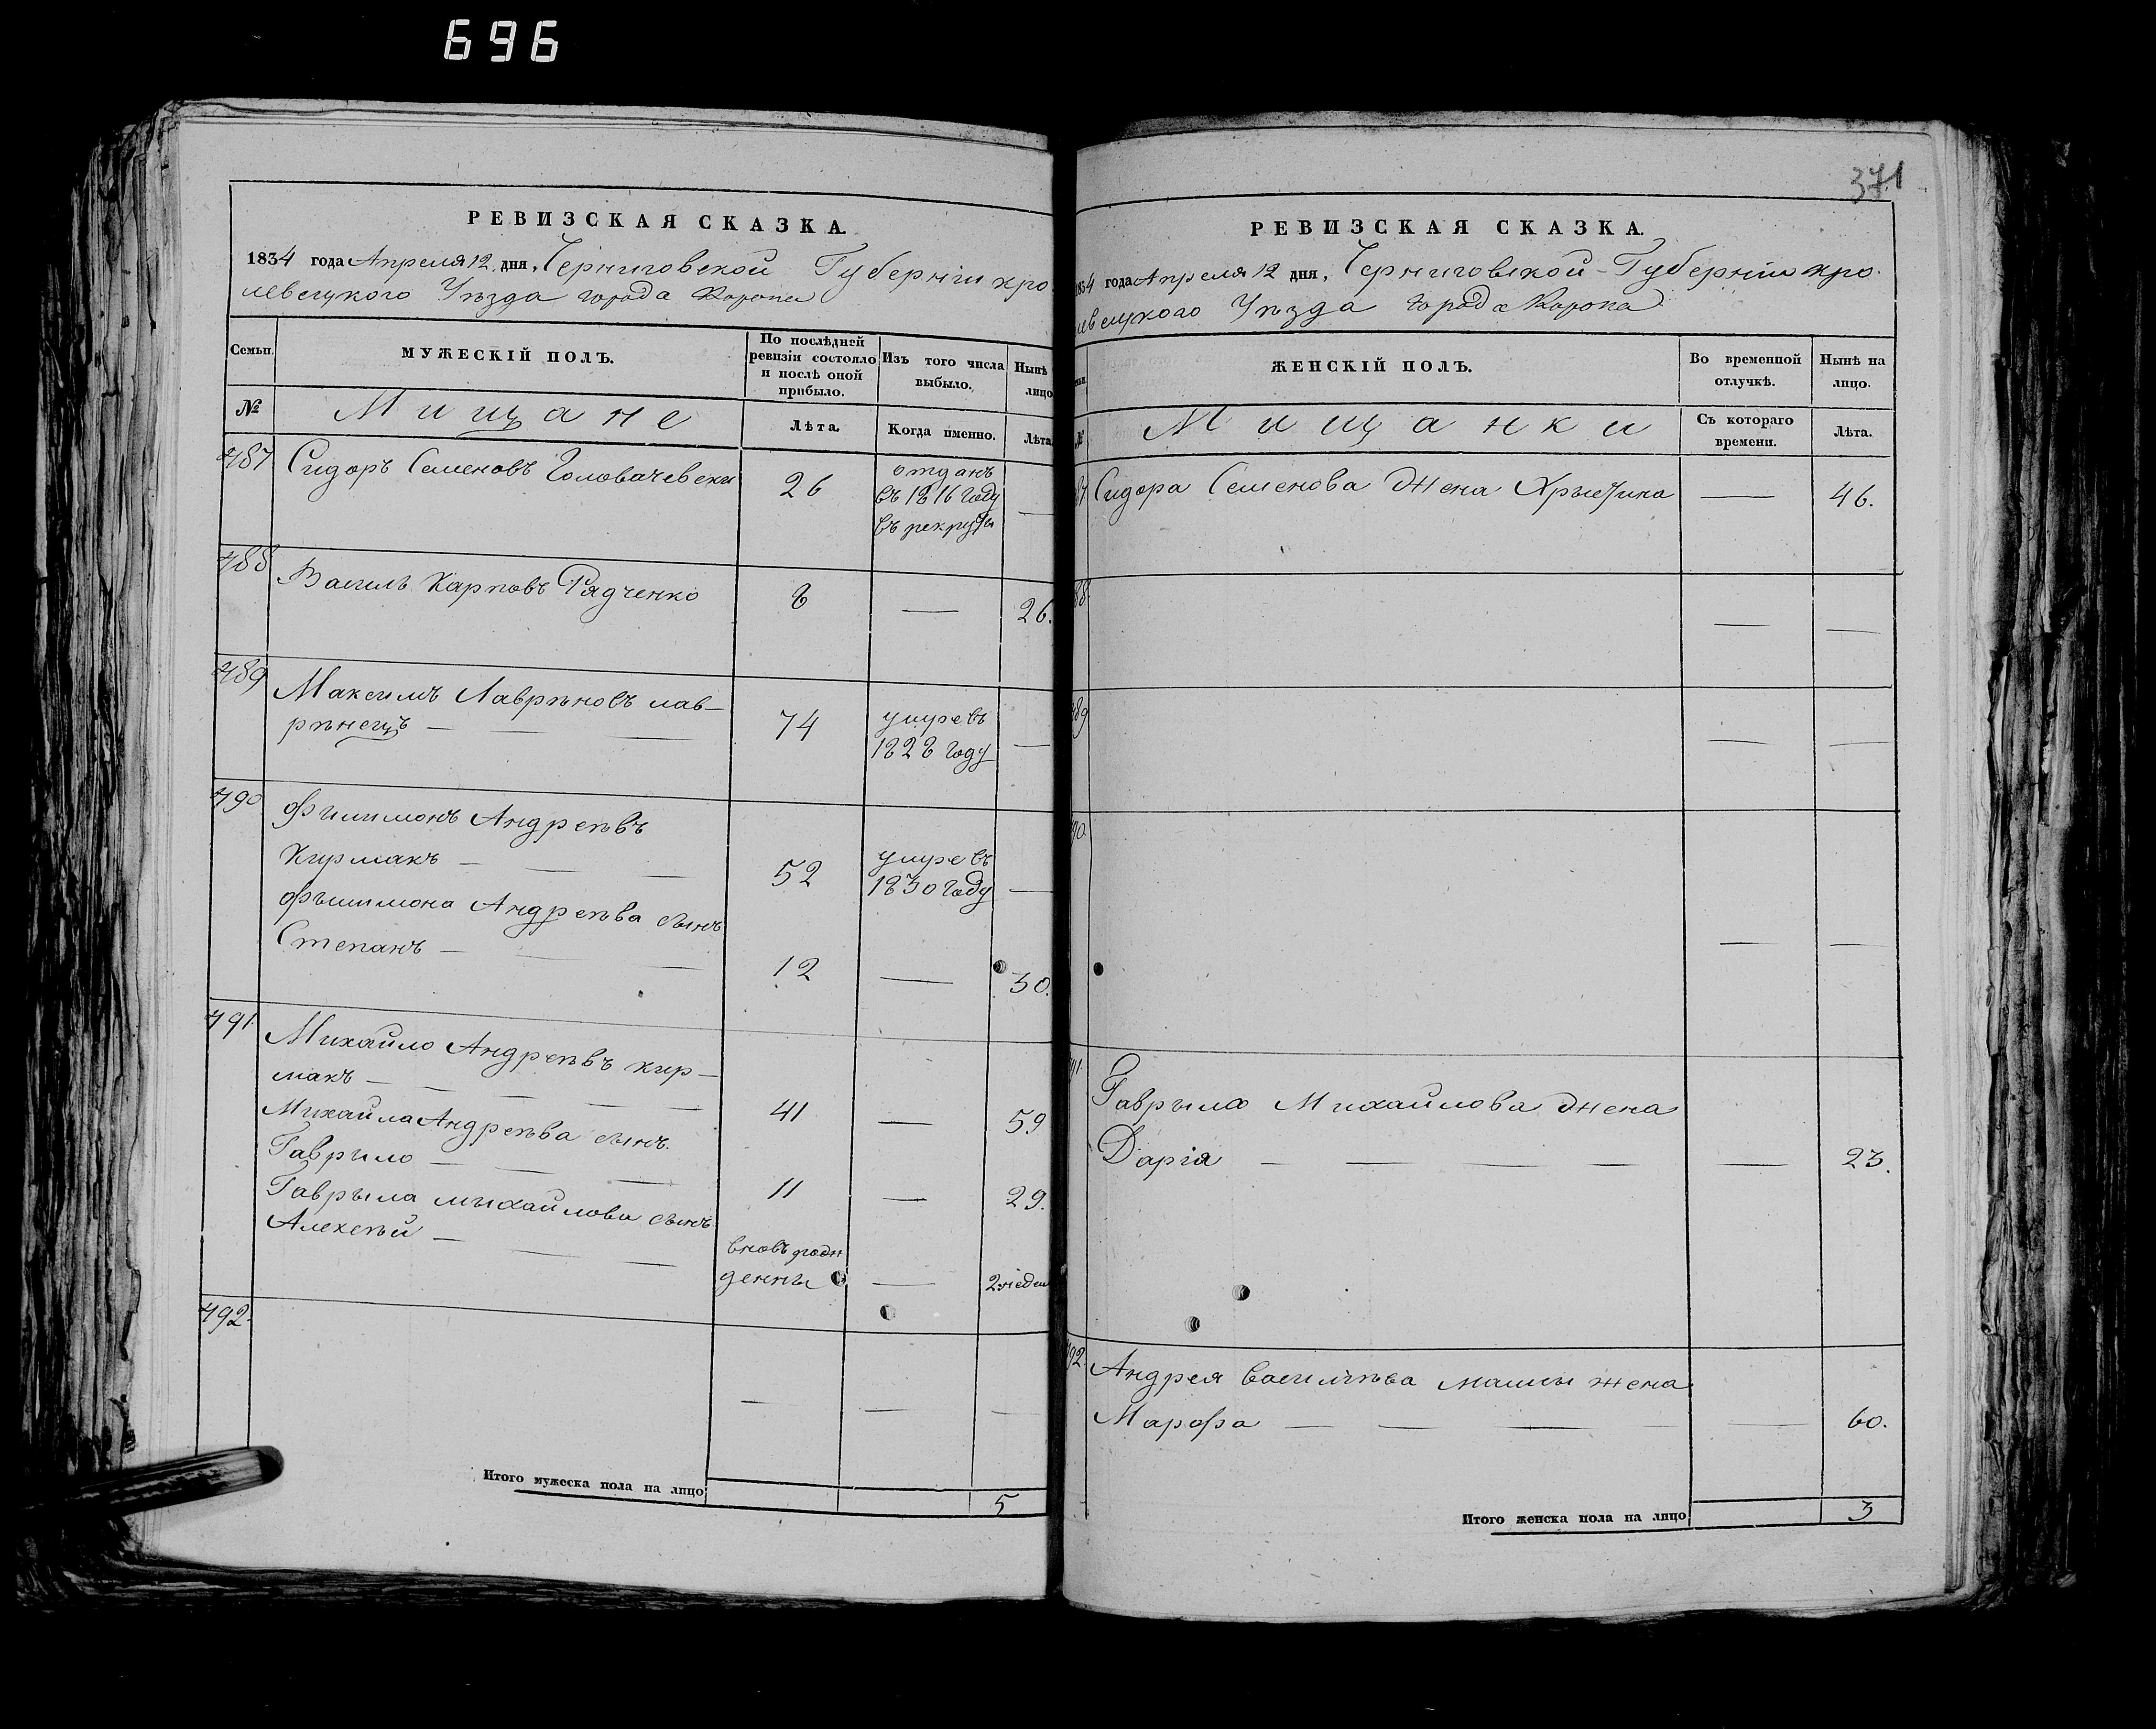 696
РЕВИЗСКАЯ СКАЗКА.
1834 года Апреля 12 дня, Черниговской Губерніи кро
левецкого Уѣзда города Коропа
Семьи.
МУЖЕСКІЙ ПОЛЪ.
По послѣдней ревизіи состояло и послѣ оной прибыло.
Изъ того числа выбыло.
Нынѣ лицо
№
Мищане
Лѣта.
Когда именно.
Лѣта
487
Сидоръ Семеновъ Головачевски
26
отданъ
въ 1816 году
въ рекруты
—
488
Василь Карповъ Рядченко
8
—
26.
489
Максимъ Лаврѣновъ лав-
рѣнецъ — — —
74
умре въ
1828 году
—
490
Филимонъ Андреѣвъ
Кирмакъ — — —
52
умре въ
1830 году
—
Филимона Андреѣва сынъ
Степанъ — — —
12
—
30.
491
Михайло Андреѣвъ кир-
макъ — — — — —
41
—
59
Михайла Андреѣва сынъ.
Гаврыло — — —
11
—
29.
Гаврыла мыхайлова сынъ
Алексѣй — — —
вновь рож
денны
—
2 недели
492.
— — —
Итого мужеска пола на лицо
5
371
РЕВИЗСКАЯ СКАЗКА.
1834 года Апреля 12 дня, Черниговской Губерніи кро-
левецкого Уѣзда города Коропа
ЖЕНСКІЙ ПОЛЪ.
Во временной отлучкѣ.
Нынѣ на лицо.
№
Мищанки
Съ котораго времени.
Лѣта.
87
Сидора Семенова жена Хрыстина
—
46.
88.
— —
489
— —
90.
— —
91.
Гаврыла Михайлова жена
Дарія — — — —
—
23.
92.
Андрея Василѣва жена
Марфа — — — —
—
60.
Итого женска пола на лицо
3